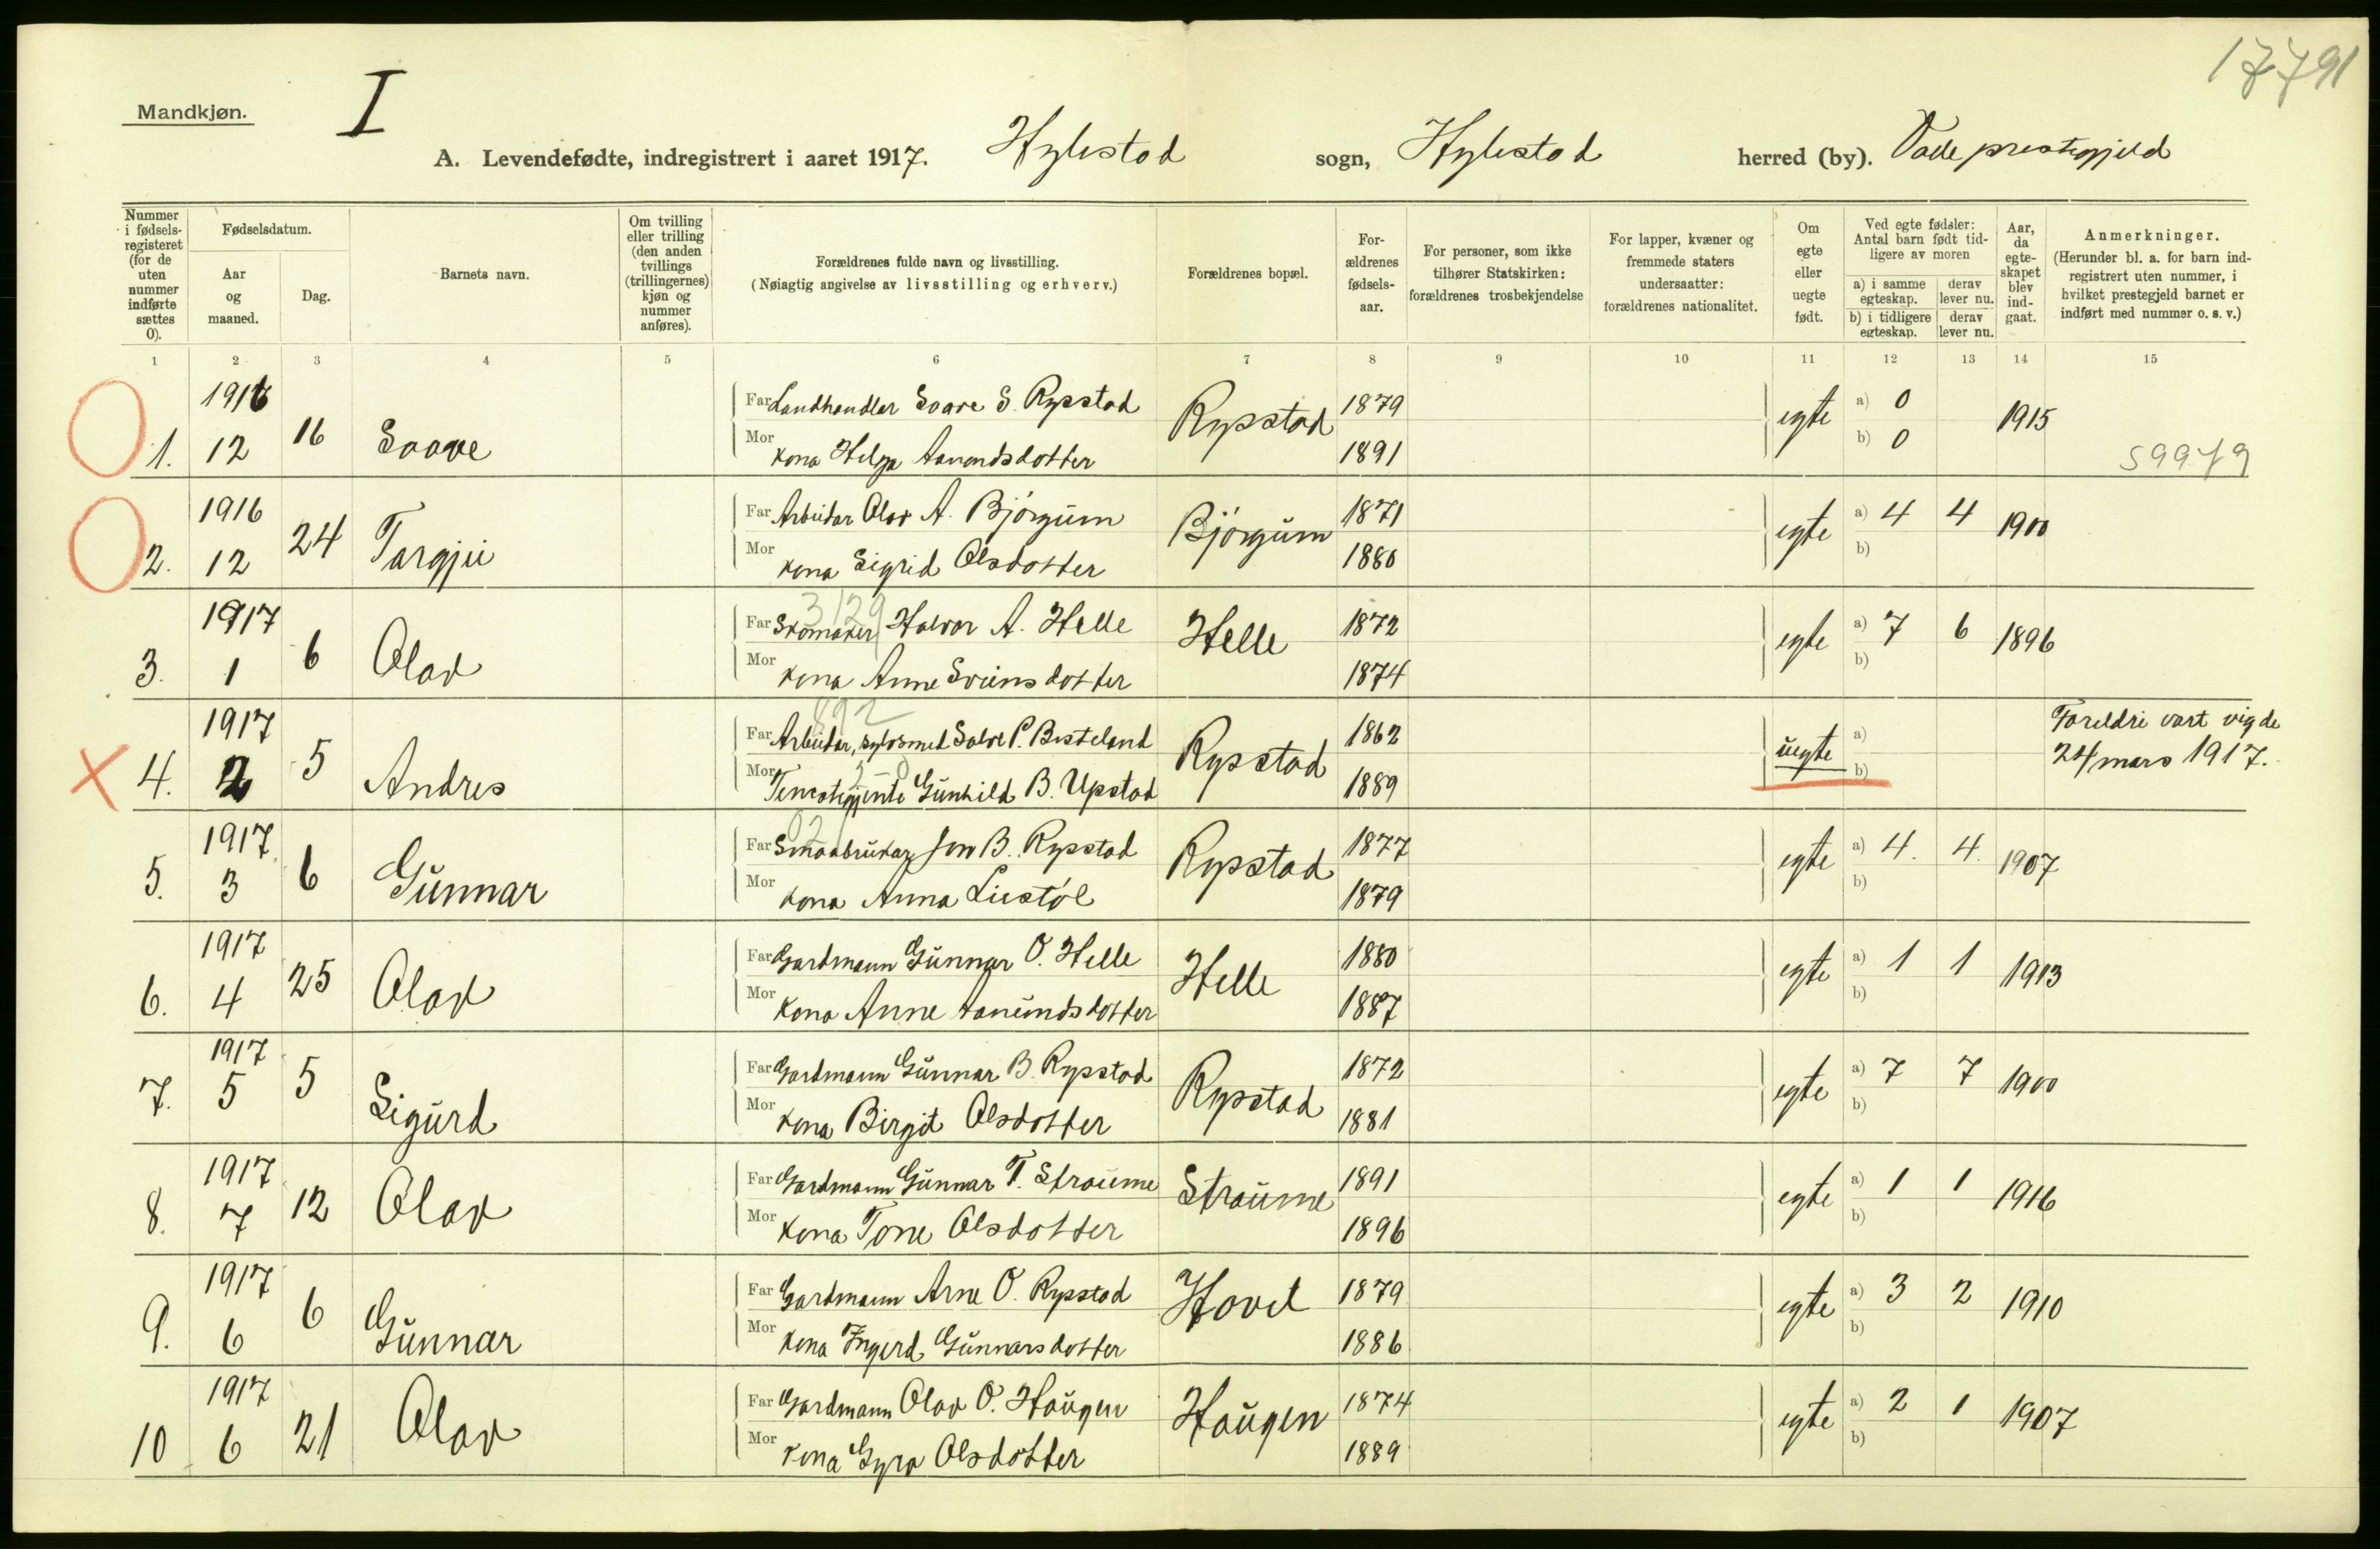 17791
Mandkjøn.
I
A. Levendefødte, indregistrert i aaret 1917. Hylestad sogn, Hylestad herred (by). Valle prestegjeld
Nummer i fødselsregisteret (for de uten nummer indførte sættes 0).
Fødselsdatum.
Aar og maaned.
Dag.
Barnets navn.
Om tvilling eller trilling (den anden tvillings (trillingernes) kjøn og nummer anføres).
Forældrenes fulde navn og livsstilling.
(Nøiagtig angivelse av livsstilling og erhverv.)
Forældrenes bopæl.
For-ældrenes fødsels-aar.
For personer, som ikke tilhører Statskirken: forældrenes trosbekjendelse
For lapper, kvæner og fremmede staters undersaatter: forældrenes nationalitet.
Om egte eller uegte født.
Ved egte fødsler: Antal barn født tidligere av moren
a) i samme egteskap.
derav lever nu.
b) i tidligere egteskap.
derav lever nu.
Aar, da egte-skapet blev ind-gaat.
Anmerkninger.
(Herunder bl. a. for barn indregistrert uten nummer, i hvilket prestegjeld barnet er indført med nummer o. s. v.)
1 2 3 4 5 6 7 8 9 10 11 12 13 14 15
1. 1916 12 16 Svave Far Landhandlar Svave S. Rysstad Rysstad 1879 egte a) 0 b) 0 1915
Mor kona Helga Aanondsdotter 1891
59979
2. 1916 12 24 Targjei Far Arbeidar Olav A. Bjørgum Bjørgum 1871 egte a) 4 4 b) 1900
Mor kona Sigrid Olsdotter 1880
3129
3. 1917 1 6 Olav Far Skomaker Halvor A. Helle Helle 1872 egte a) 7 6 b) 1896
Mor kona Anne Sveinsdotter 1874
4. 1917 2 5 Andres Far Arbeidar, sylvsmed Salve P. Besteland Rysstad 1862 uegte a) b) Foreldri vart vigde
Mor Tenestegjente Gunhild B. Upstad 1889 24/mars 1917.
5. 1917 3 6 Gunnar Far Smaabrukar Jon B. Rysstad Rysstad 1877 egte a) 4. 4. b) 1907
Mor kona Anna Liestøl 1879
6. 1917 4 25 Olav Far Gardmann Gunnar O. Helle Helle 1880 egte a) 1 1 b) 1913
Mor kona Anne Aanundsdotter 1887
7. 1917 5 5 Sigurd Far Gardmann Gunnar B. Rysstad Rysstad 1872 egte a) 7 7 b) 1900
Mor kona Birgit Olsdotter 1881
8. 1917 7 12 Olav Far Gardmann Gunnar T. Straume Straume 1891 egte a) 1 1 b) 1916
Mor kona Tone Olsdotter 1896
9. 1917 6 6 Gunnar Far Gardmann Arne O. Rysstad Hovet 1879 egte a) 3 2 b) 1910
Mor kona Ingerd Gunnarsdotter 1886
10 1917 6 21 Olav Far Gardmann Olav O. Haugen Haugen 1874 egte a) 2 1 b) 1907
Mor kona Gyro Olsdotter 1889